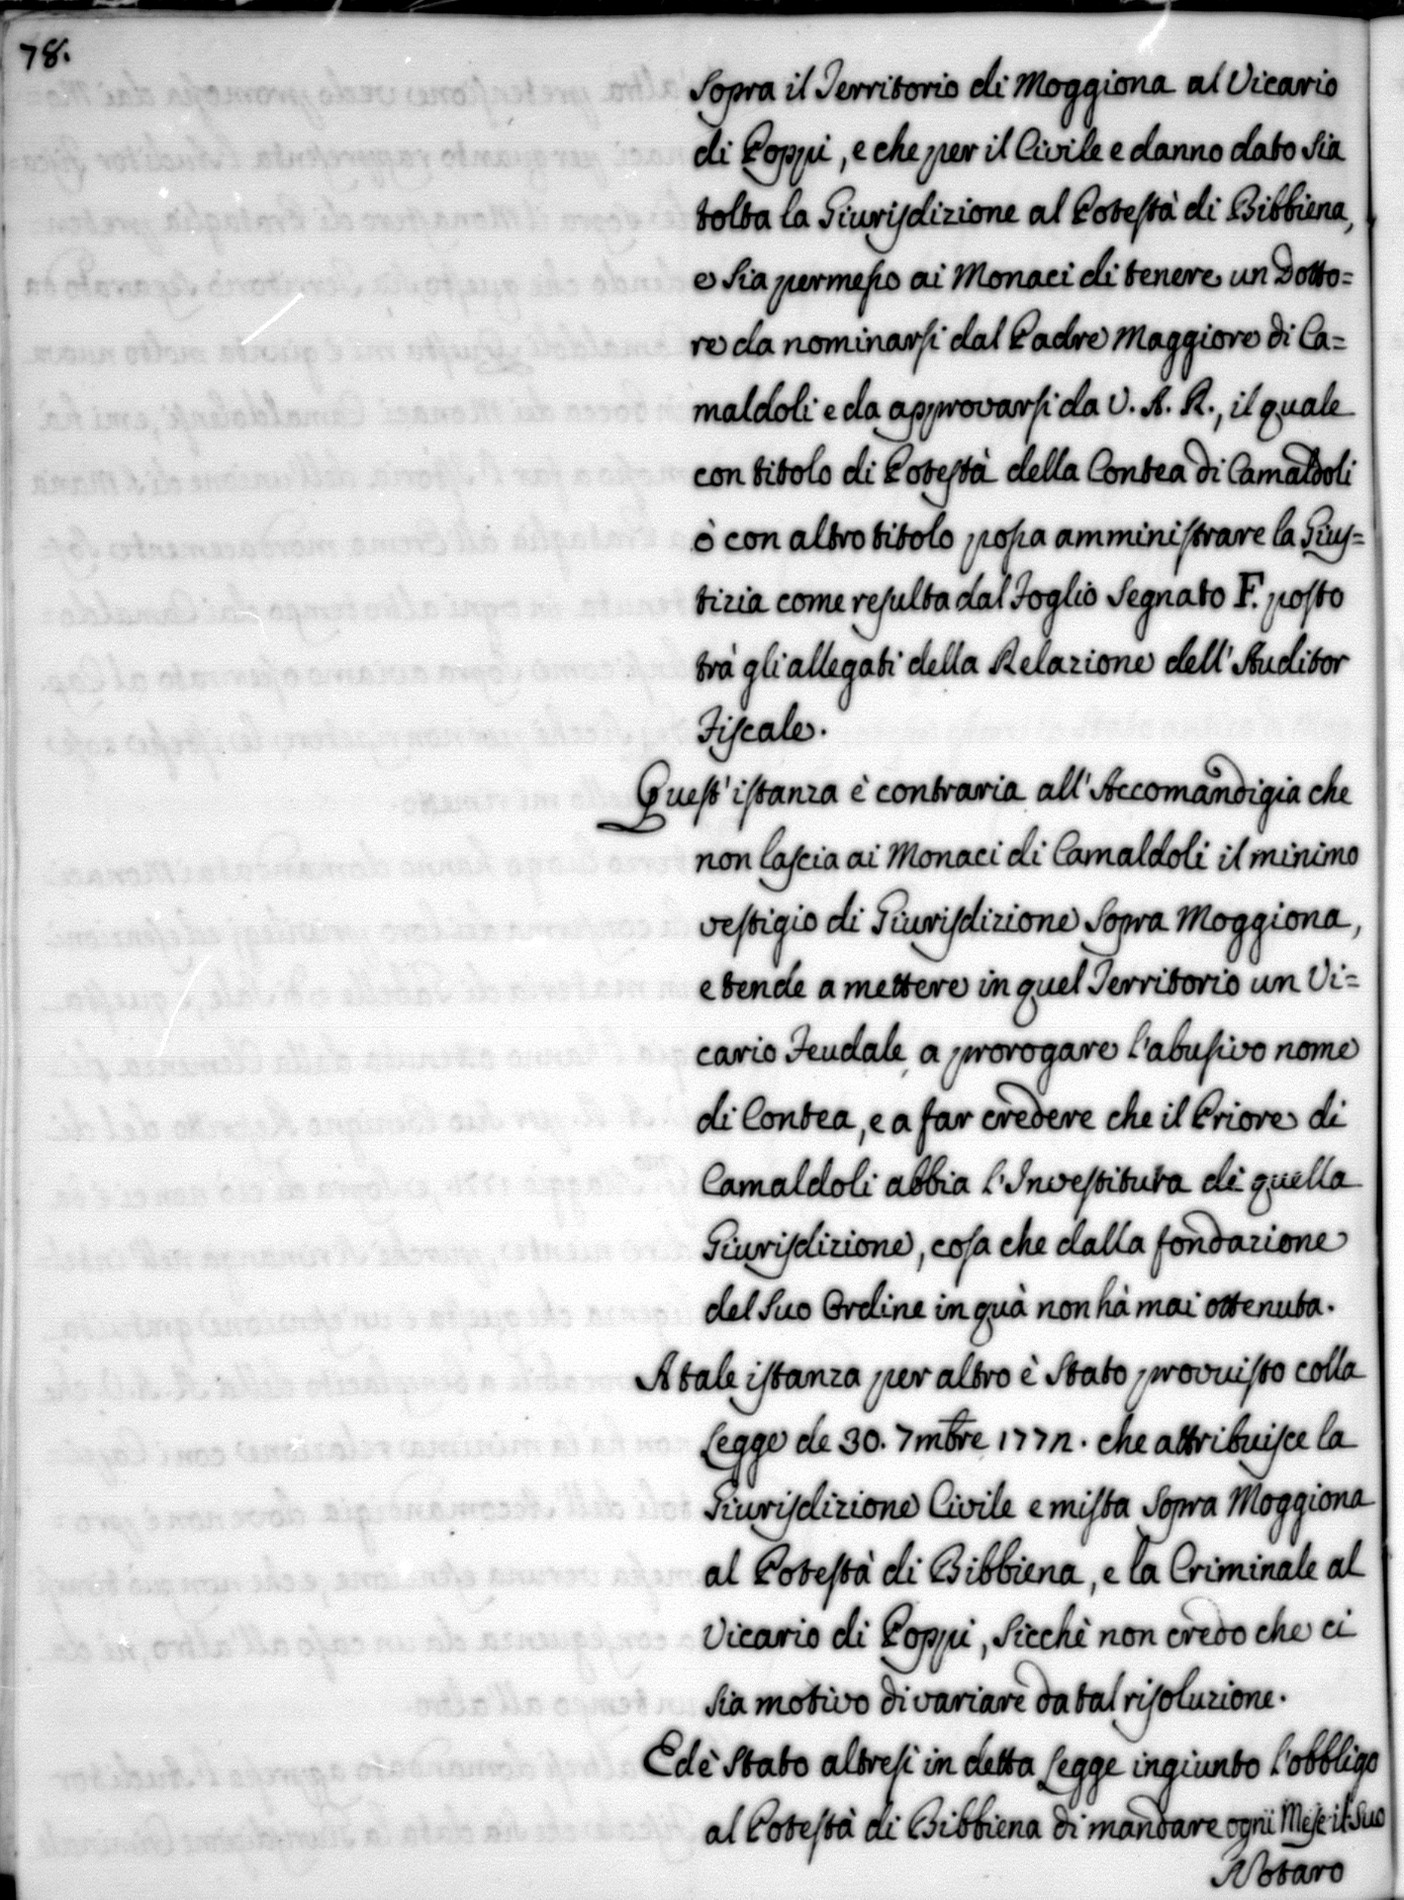 78.
Sopra il Territorio di Moggiona al Vicario
di Poppi, e che per il Civile e danno dato sia
tolta la Giurisdizione al Potestà di Bibbiena,
e sia permesso ai Monaci di tenere un Dotto=
re da nominarsi dal Padre Maggiore di Ca=
maldoli e da approvarsi da V. A. R., il quale
con titolo di Potestà della Contea di Camaldoli
ò con altro titolo possa amministrare la Gius=
tizia come resulta dal Foglio Segnato F. posto
trà gli allegati della Relazione dell'Auditor
Fiscale.
Quest'istanza è contraria all'Accomandigia che
non lascia ai Monaci di Camaldoli il minimo
vestigio di Giurisdizione Sopra Moggiona,
e tende a mettere in quel Territorio un Vi=
cario Feudale, a prorogare l'abusivo nome
di Contea, e a far credere che il Priore di
Camaldoli abbia l'Investitura di quella
Giurisdizione, cosa che dalla fondazione
del Suo Ordine in quà non hà mai ottenuta.
A tale istanza per altro è Stato provvisto colla
Legge de 30. 7mbre che attribuisce la
Giurisdizione Civile e mista Sopra Moggiona
al Potestà di Bibbiena, e la Criminale al
Vicario di Poppi, Sicchè non credo che ci
sia motivo di variare da tal risoluzione.
Ed è Stato altresì in detta Legge ingiunto l'obbligo
al Potestà di Bibbiena di mandare ogni Mese il Suo
Notaro